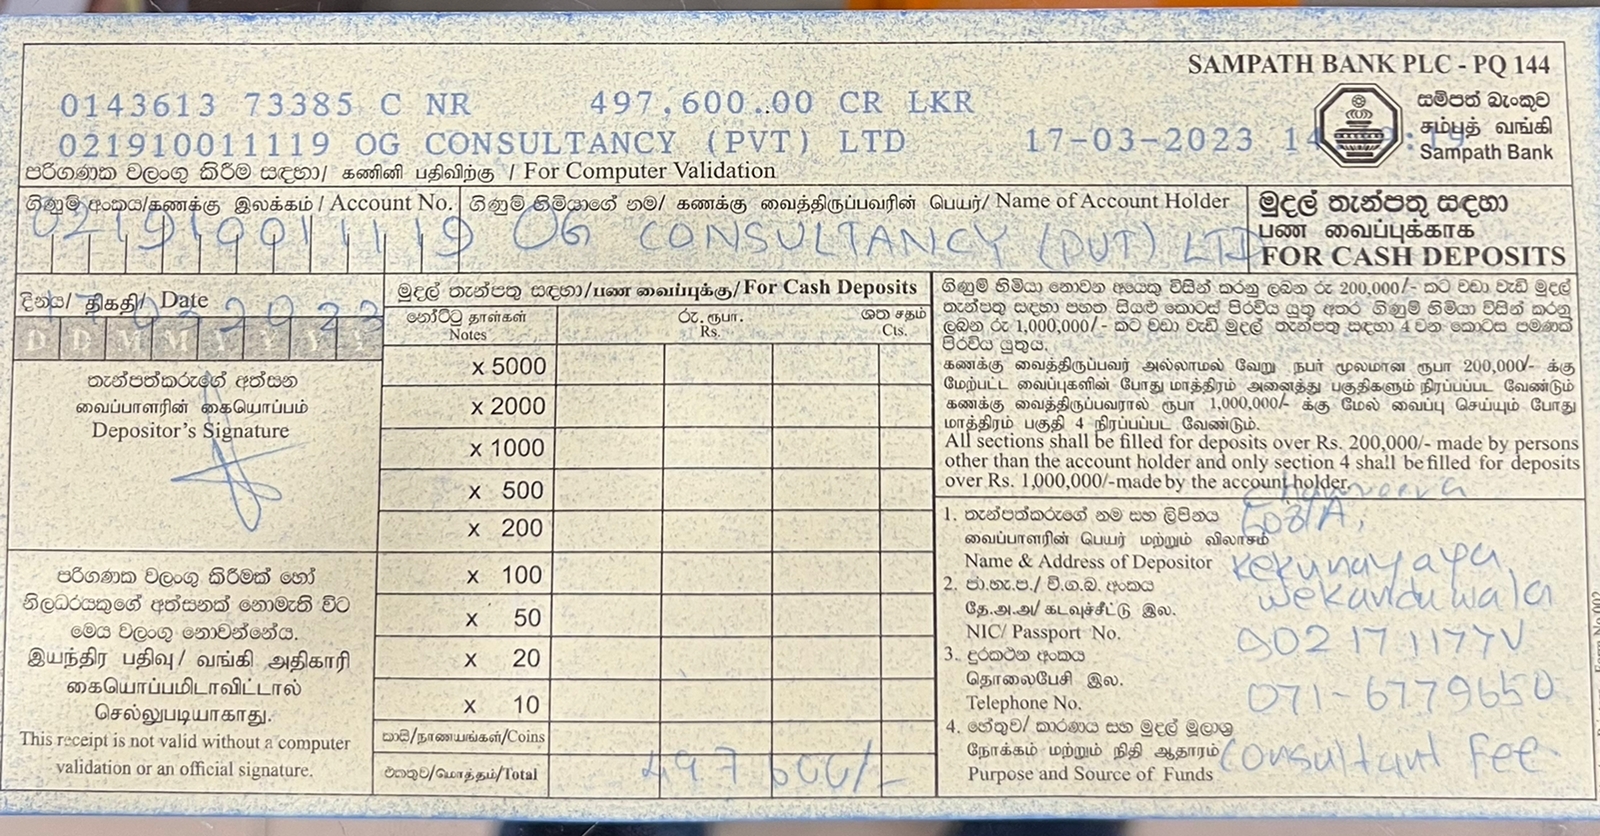 SAMPATH BANK PLC - PQ 144
0143613 73385 C NR 497,600.00 CR LKR
021910011119 OG CONSULTANCY (PVT) LTD 17-03-2023
සම්පත් බැංකුව
சம்பத் வங்கி
Sampath Bank
පරිගණක වලංගු කිරීම සඳහා/ கணினி பதிவிற்கு / For Computer Validation
ගිණුම් අංකය/கணக்கு இலக்கம் / Account No.
021910011119
ගිණුම් හිමියාගේ නම/ கணக்கு வைத்திருப்பவரின் பெயர்/ Name of Account Holder
OG CONSULTANCY (PVT) LTD
මුදල් තැන්පතු සඳහා
பண வைப்புக்காக
FOR CASH DEPOSITS
දිනය/ திகதி/ Date
17032023
D D M M Y Y Y Y
තැන්පත්කරුගේ අත්සන
வைப்பாளரின் கையொப்பம்
Depositor's Signature
පරිගණක වලංගු කිරීමක් හෝ
නිලධරයකුගේ අත්සනක් නොමැති විට
මෙය වලංගු නොවන්නේය.
இயந்திர பதிவு/ வங்கி அதிகாரி
கையொப்பமிடாவிட்டால்
செல்லுபடியாகாது.
This receipt is not valid without a computer
validation or an official signature.
මුදල් තැන්පතු සඳහා/பண வைப்புக்கு/For Cash Deposits
නෝට්ටු தாள்கள் රු. ரூபா. ශත சதம்
Notes Rs. Cts.
x 5000
x 2000
x 1000
x 500
x 200
x 100
x 50
x 20
x 10
කාසි/நாணயங்கள்/Coins
එකතුව/மொத்தம்/Total 497 600/-
ගිණුම් හිමියා නොවන අයෙකු විසින් කරනු ලබන රු 200,000/- කට වඩා වැඩි මුදල්
තැන්පතු සඳහා පහත සියළු කොටස් පිරවිය යුතු අතර ගිණුම් හිමියා විසින් කරනු
ලබන රු 1,000,000/- කට වඩා වැඩි මුදල් තැන්පතු සඳහා 4 වන කොටස පමණක්
පිරවිය යුතුය.
கணக்கு வைத்திருப்பவர் அல்லாமல் வேறு நபர் மூலமான ரூபா 200,000/- க்கு
மேற்பட்ட வைப்புகளின் போது மாத்திரம் அனைத்து பகுதிகளும் நிரப்பப்பட வேண்டும்
கணக்கு வைத்திருப்பவரால் ரூபா 1,000,000/- க்கு மேல் வைப்பு செய்யும் போது
மாத்திரம் பகுதி 4 நிரப்பப்பட வேண்டும்.
All sections shall be filled for deposits over Rs. 200,000/- made by persons
other than the account holder and only section 4 shall be filled for deposits
over Rs. 1,000,000/-made by the account holder.
1. තැන්පත්කරුගේ නම සහ ලිපිනය
வைப்பாளரின் பெயர் மற்றும் விலாசம்
Name & Address of Depositor
Kekunayaya,
Wekanduwala
2. ජා.හැ.ප./ වි.ග.බ. අංකය
தே.அ.அ/ கடவுச்சீட்டு இல.
NIC/ Passport No.
902171177V
3. දුරකථන අංකය
தொலைபேசி இல.
Telephone No.
071-6779650
4. හේතුව/ காரணය සහ මුදල් මූලාශ්‍ර
நோக்கம் மற்றும் நிதி ஆதாரம்
Purpose and Source of Funds
Consultant Fee